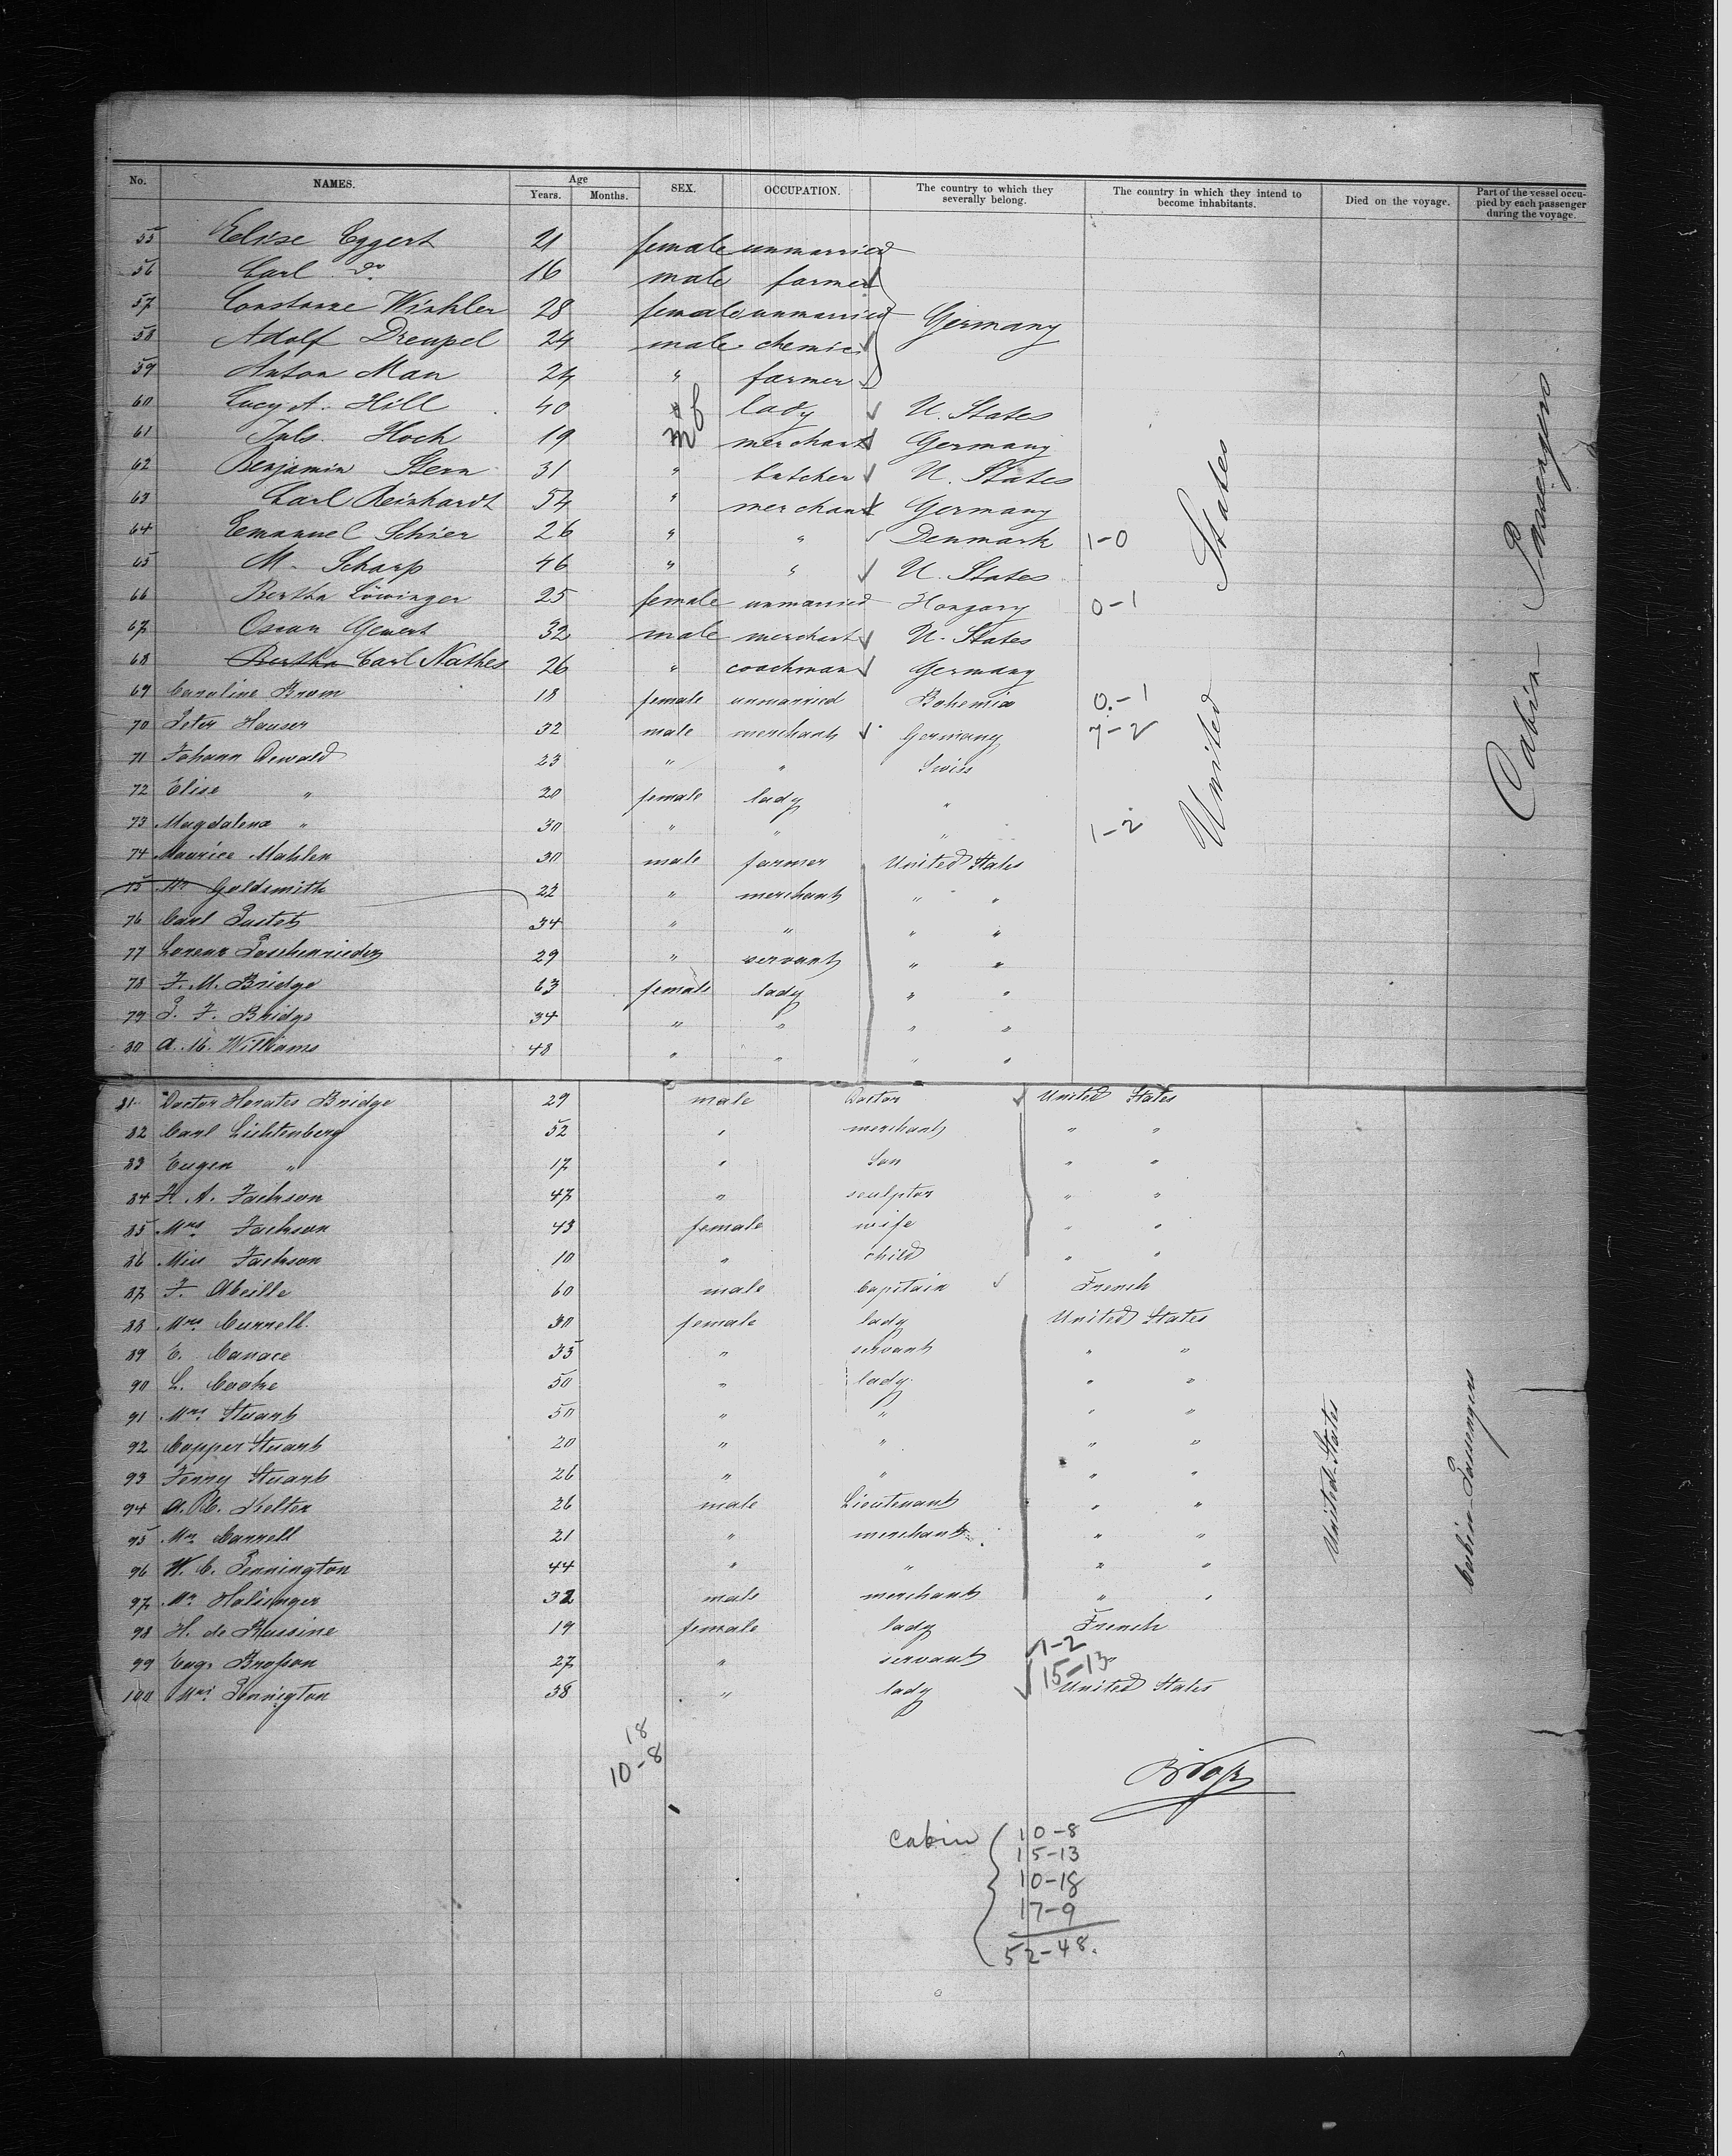 No. NAMES. Age Years. Months. SEX. OCCUPATION. The country to which they severally belong. The country in which they intend to become inhabitants. Died on the voyage. Part of the vessel occupied by each passenger during the voyage.
55 Eelise Eggert 21 female unmarried
56 Carl do 16 male farmer
57 Constanze Winkler 28 female unmarried Germany
58 Adolf Dreupel 24 male chemic
59 Anton Man 24 " farmer
60 Lucy A. Hill 40 " f lady U. States
61 Juls. Hoch 19 m merchant Germany
62 Benjamin Stern 31 " butcher U. States
63 Carl Reinhardt 54 " merchant Germany
64 Eemanuel Schier 26 " " Denmark 1-0
65 M. Scharp 46 " " U. States
66 Bertha Löwinger 25 female unmarried Hongary 0-1
67 Oscar Gewert 32 male merchant U. States
68 Bertha Carl Nathes 26 " coachman Germany
69 Caroline Brom 18 female unmarried Bohemia 0-1
70 Peter Hauser 32 male merchant Germany 7-2
71 Johann Oswald 23 " " Swiss
72 Elise " 20 female lady "
73 Magdalena " 30 " " " 1-2
74 Maurice Mahler 30 male farmer United States
75 Mr Goldsmith 22 " merchant " "
76 Carl Pustet 34 " " " "
77 Lorenz Paschenrieder 29 " servant " "
78 F. M. Bridge 63 female lady " "
79 P. F. Bridge 34 " " " "
80 A. M. Williams 48 " " " "
United States
Cabin Passengers
81 Doctor Horates Bridge 29 male Doctor United States
82 Carl Lichtenberg 52 " merchant " "
83 Eugen " 17 " Son " "
84 F. A. Jackson 47 " sculptor " "
85 Mrs Jackson 43 female wife " "
86 Miss Jackson 10 " child " "
87 F. Abeille 60 male Capitain French
88 Mrs Currell. 30 female lady United States
89 E. Canace 35 " servant " "
90 L. Cooke 50 " lady " "
91 Mrs Stuart 50 " " " "
92 Copper Stuart 20 " " " "
93 Fenny Stuart 26 " " " "
94 A. C. Kelter 36 male Lieutenant " "
95 Mr Carrell 21 " merchant " "
96 W. C. Pennington 44 " " " "
97 Mr Halsinger 32 male merchant " "
98 H. de Bussine 19 female lady French
99 Eug. Brosson 27 " servant 1-2 "
15-13
100 Mrs Pennigton 38 " lady United States
United States
Cabin Passengers
18
10-8
Cabin 10-8
15-13
10-18
17-9
52-48.